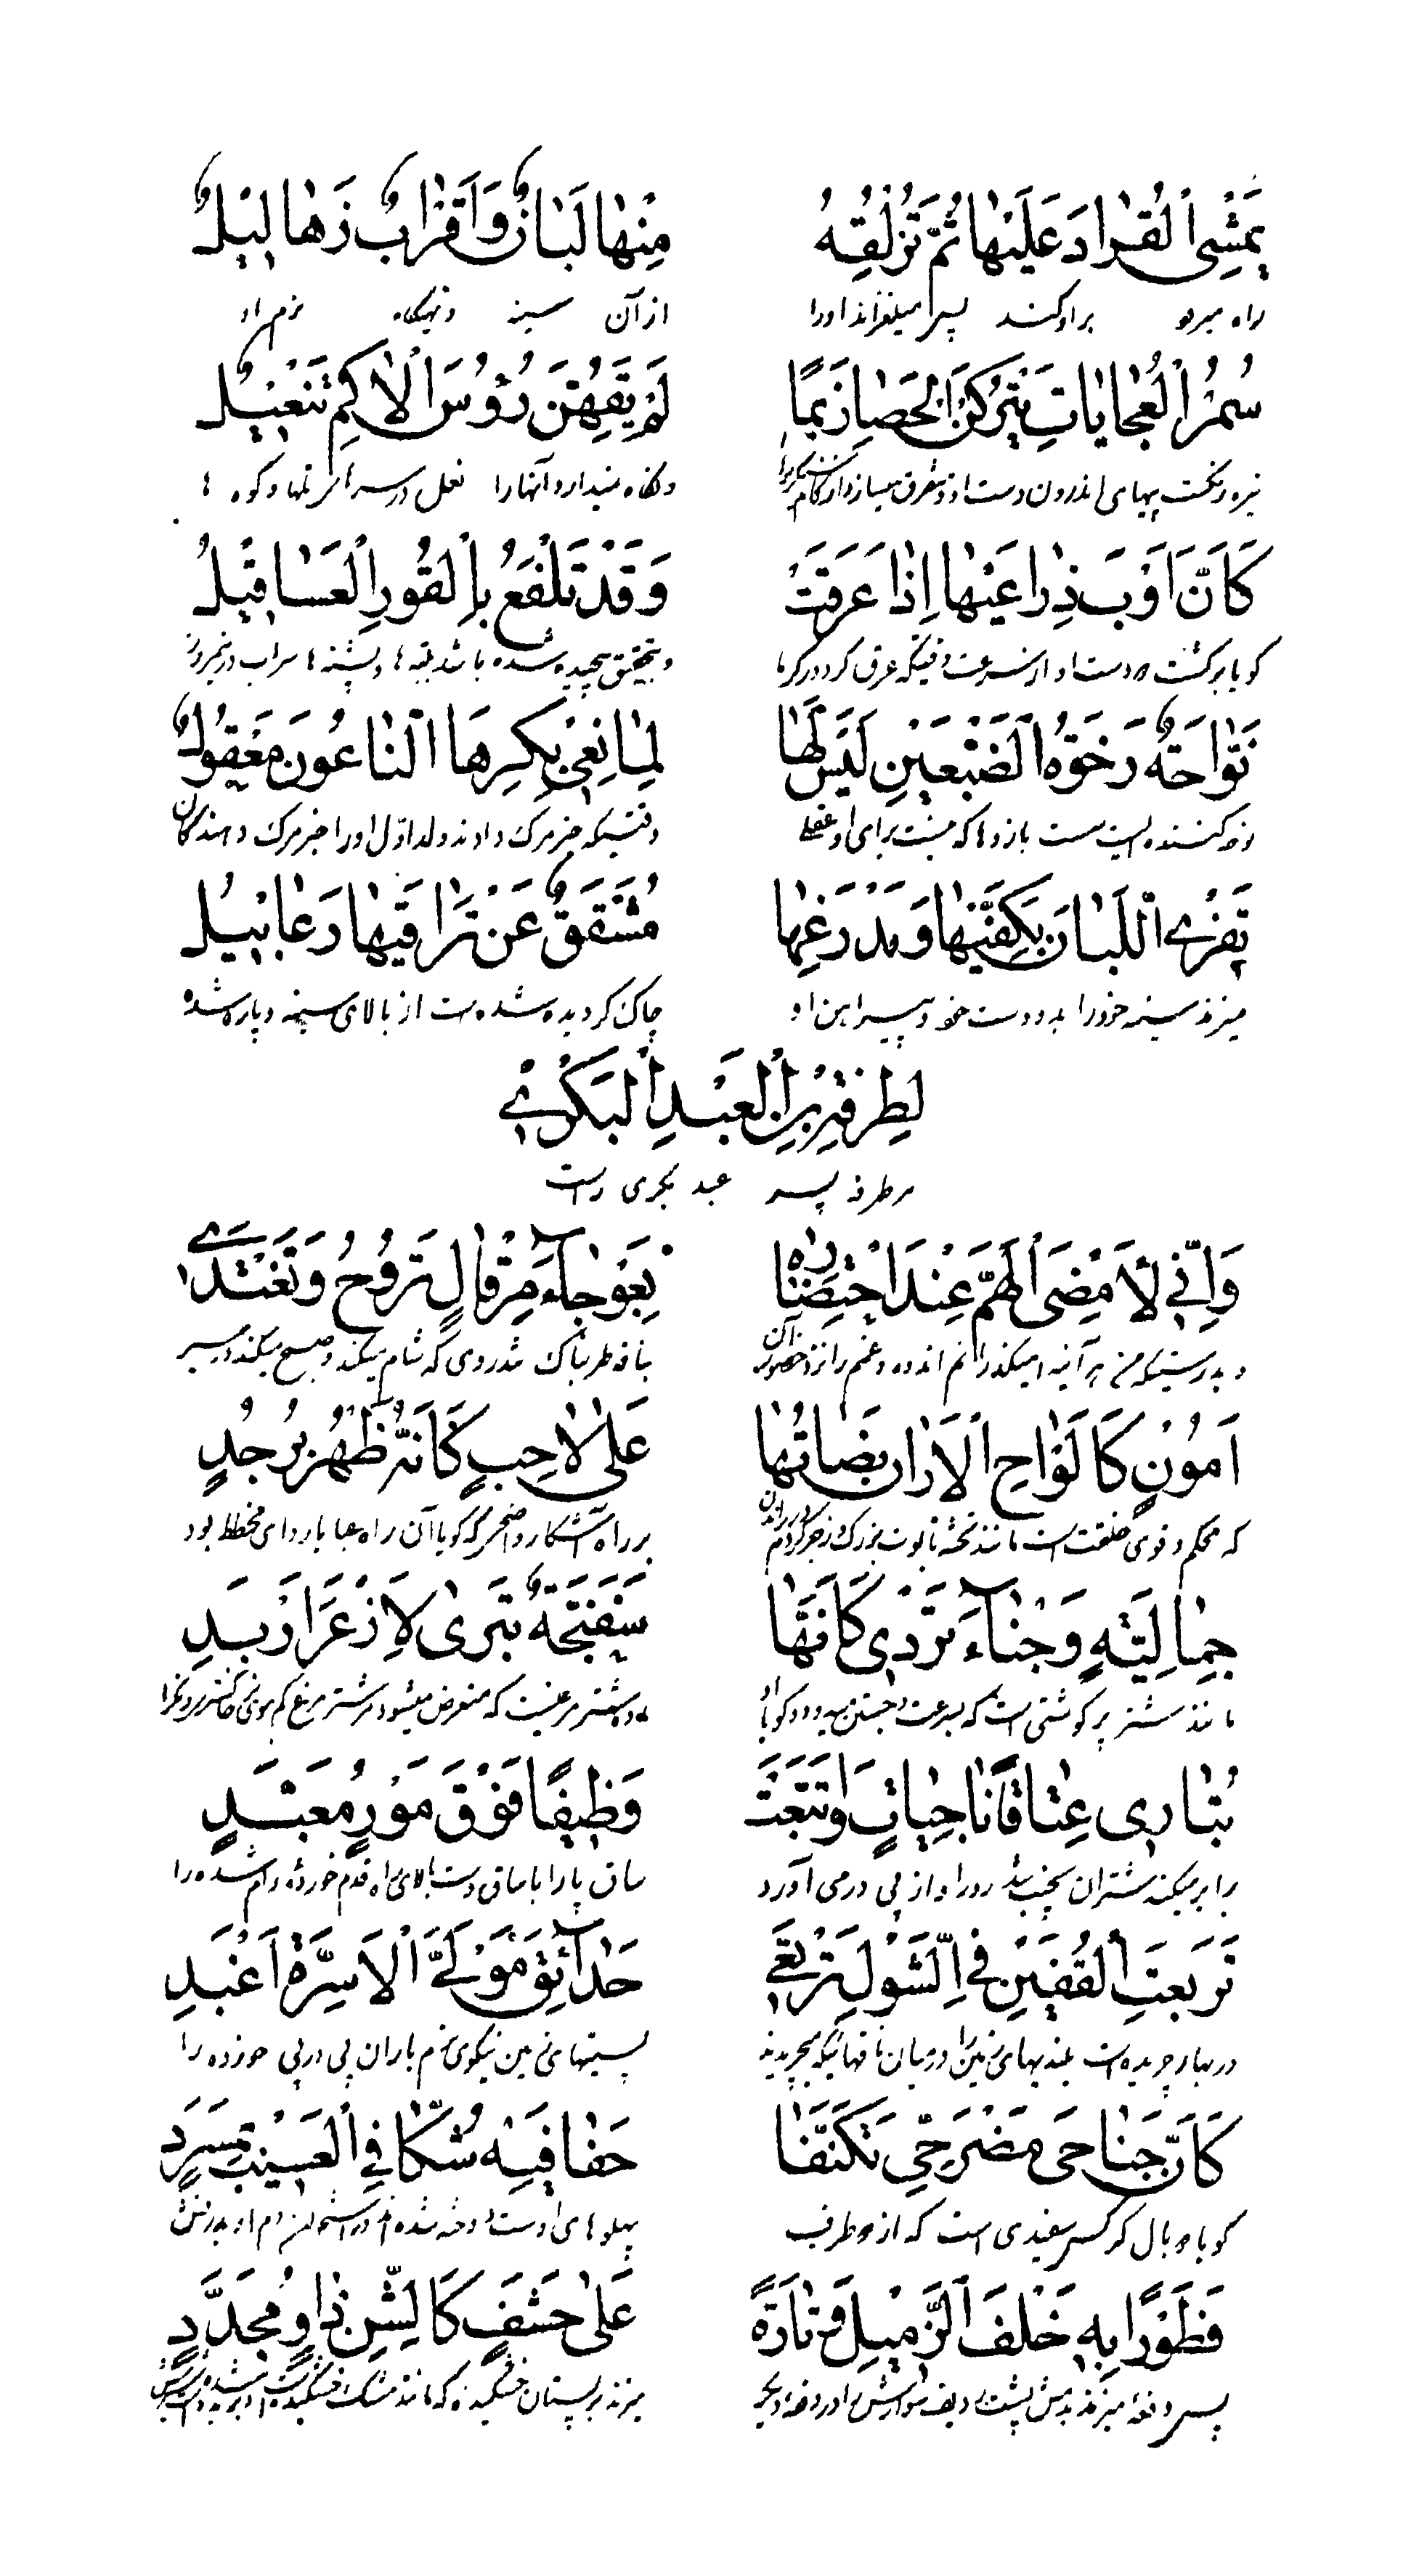 يَمْشِى ٱلْقُرَادُ عَلَيْهَا ثُمَّ تُزْلِقُهُ مِنْهَا لَبَانٌ وَأَقْرَابٌ زَهَالِيْلُ
راه میرود براو کنه پس میلغزاند اورا از آن سینه و تهیگاه نرم او
سُمْرُ ٱلْعُجَايَاتِ يَتْرُكْنَ الْحَصَا زِيَمًا لَمْ يَقِهِنَّ رُؤُسَ ٱلْاُكْمِ تَنْعِيْلُ
تیره رنگست پیهای اندرون دست او متفرق میسازد ونگاه میدارد آنها را نعل در سر تلها و کوه ها
كَاَنَّ اَوْبَ ذِرَاعَيْهَا اِذَا عَرِقَتْ وَقَدْ تَلَفَّعَ بِٱلْقُوْرِ ٱلْعَسَاقِيْلُ
کویا برکشت دو دست او از سرعت وقتیکه عرق کرد در کرما و بتحقیق پیچیده شده باشد بتپه ها و پشته ها سراب در نیمروز
نَوَّاحَةٌ رَخْوَةُ ٱلضَّبْعَيْنِ لَيْسَ لَهَا لَمَّا نَعٰى بِكْرَهَا ٱلنَّاعُوْنَ مَعْقُوْلُ
نوحه کننده ایست سست بازوها که نیست برای او عقلی وقتیکه خبر مرک دادند ولد اول اورا خبر مرک دهندکان
تَفْرِى ٱللَّبَانَ بِكَفَّيْهَا وَمِدْرَعُهَا مُشَقَّقٌ عَنْ تَرَاقِيْهَا رَعَابِيْلُ
میزند سینه خود را بدو دست خود و پیراهن او چاک کردیده شده است از بالای سینه و پاره شده
لِطَرَفَةِ بْنِ ٱلْعَبْدِ ٱلْبَكْرِىِّ
مر طرفه پسر عبد بکری راست
وَاِنِّى لَاُمْضِى ٱلْهَمَّ عِنْدَ احْتِضَارِهِ بِعَوْجَآءَ مِرْقَالٍ تَرُوْحُ وَتَغْتَدِى
و بدرستیکه من هر آینه میکذرانم اندوه و غم را نزد حضور آن بناقه طربناک تندروی که شام میکند و صبح میکند در سیر
اَمُوْنٍ كَاَلْوَاحِ ٱلْاَرَانِ نَضَاْتُهَا عَلٰى لَاحِبٍ كَاَنَّهُ ظَهْرُ بُرْجُدِ
که محکم و قوی خلقت است مانند تخته تابوت بزرک زجر کردم بر راه آشکار واضحی که کویا آن راه عبا یا ردای مخطط بود
جُمَالِيَّةٍ وَجْنَآءَ تَرْدِى كَاَنَّهَا سَفَنَّجَةٌ تَبْرِى لِاَزْعَرَ اَرْبَدِ
مانند شتر پر کوشتی است که بسرعت و جستن میدود کویا او ماده شتر مرغیست که متعرض میشود مر شتر مرغ کم موی خاکستر رنگ را
تُبَارِى عِتَاقًا نَاجِيَاتٍ وَاَتْبَعَتْ وَظِيْفًا وَظِيْفًا فَوْقَ مَوْرٍ مُعَبَّدٍ
برابر میکند شتران نجیب تند رو را و از پی در می آورد ساق پا را با ساق دست بالای راه قدم خورده رام شده را
تَرَبَّعَتِ ٱلْقُفَّيْنِ فِى ٱلشَّوْلِ تَرْتَعِى حَدَآئِقَ مَوْلِىِّ ٱلْاَسِرَّةِ اَغْيَدِ
در بهار چریده است بلندیهای زمین را در میان ناقهائیکه میچریدند پستیهای زمین نیکوی نرم باران پی در پی خورده را
كَاَنَّ جَنَاحَى مَضْرَحِىٍّ تَكَنَّفَا حِفَافَيْهِ شُكَّا فِى ٱلْعَسِيْبِ بِمِسْرَدِ
کویا دو بال کرکس سفیدی است که از دو طرف پهلوهای اوست دوخته شده اند در استخوان دم او بدرفش
فَطَوْرًا بِهِ خَلْفَ ٱلزَّمِيْلِ وَتَارَةً عَلٰى حَشَفٍ كَالشَّنِّ ذَاوٍ مُجَدَّدِ
پس دفعه میزند بدمش پشت ردیف سوارش را و دفعه دیگر میزند بر پستان خشکیده که مانند مشک خشکیده است